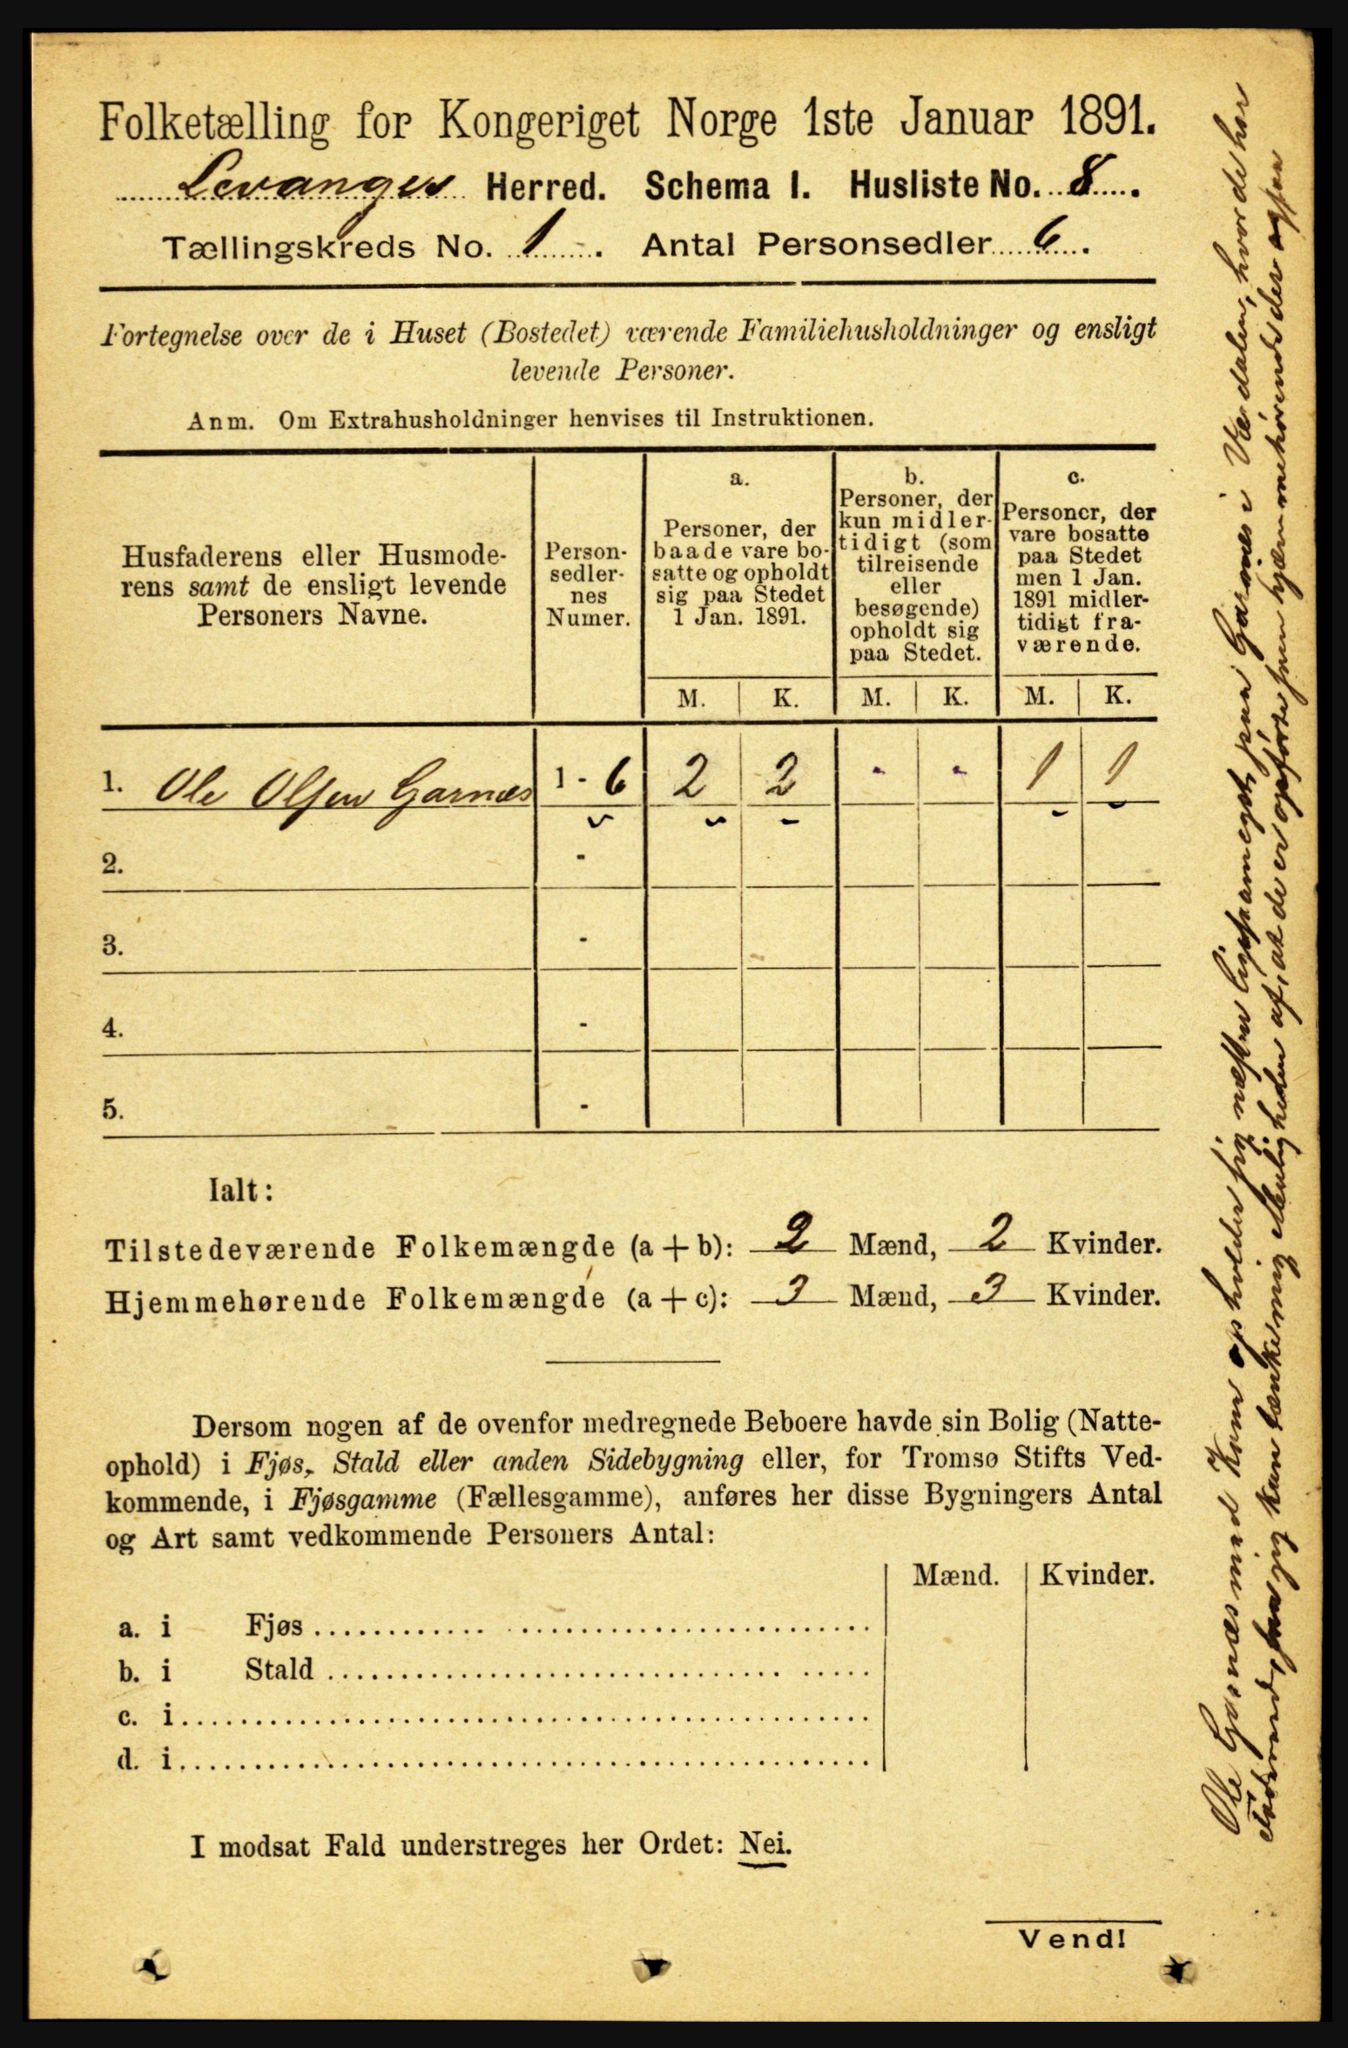 Folketælling for Kongeriget Norge 1ste Januar 1891.
Levanger Herred. Schema I. Husliste No. 8.
Tællingskreds No. 1. Antal Personsedler 6.
Fortegnelse over de i Huset (Bostedet) værende Familiehusholdninger og ensligt
levende Personer.
Anm. Om Extrahusholdninger henvises til Instruktionen.
Husfaderens eller Husmode-
rens samt de ensligt levende
Personers Navne.
Person-
sedler-
nes
Numer.
a.
Personer, der
baade vare bo-
satte og opholdt
sig paa Stedet
1 Jan. 1891.
b.
Personer, der
kun midler-
tidigt (som
tilreisende
eller
besøgende)
opholdt sig
paa Stedet.
c.
Personer, der
vare bosatte
paa Stedet
men 1 Jan.
1891 midler-
tidigt fra-
værende.
M. K. M. K. M. K.
1. Ole Olsen Garnæs 1 - 6 2 2 - - 1 1
2. -
3. -
4. -
5. -
Ialt:
Tilstedeværende Folkemængde (a + b): 2 Mænd, 2 Kvinder.
Hjemmehørende Folkemængde (a + c): 3 Mænd, 3 Kvinder.
Dersom nogen af de ovenfor medregnede Beboere havde sin Bolig (Natte-
ophold) i Fjøs, Stald eller anden Sidebygning eller, for Tromsø Stifts Ved-
kommende, i Fjøsgamme (Fællesgamme), anføres her disse Bygningers Antal
og Art samt vedkommende Personers Antal:
Mænd. Kvinder.
a. i Fjøs
b. i Stald
c. i
d. i
I modsat Fald understreges her Ordet: Nei.
Vend!
Ole Garnæs med Kone opholder sig næsten ligesaameget paa Garnæs i Værdalen, hvor de har
saa jeg kan tænke mig af, at de er opførte som hjemmehørende der ogsaa